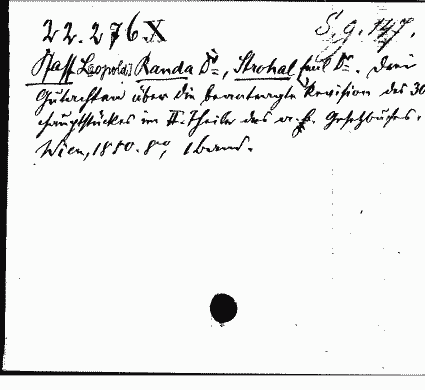 22.276 X S.g. 147.
Pfaff [Leopold] Randa Dr., Strohal Emil Dr. Drei
Gutachten über die beantragte Revision des 30
Hauptstückes im II. Theile des a. b. Gesetzbuches.
Wien, 1880. 8°, 1 Band.